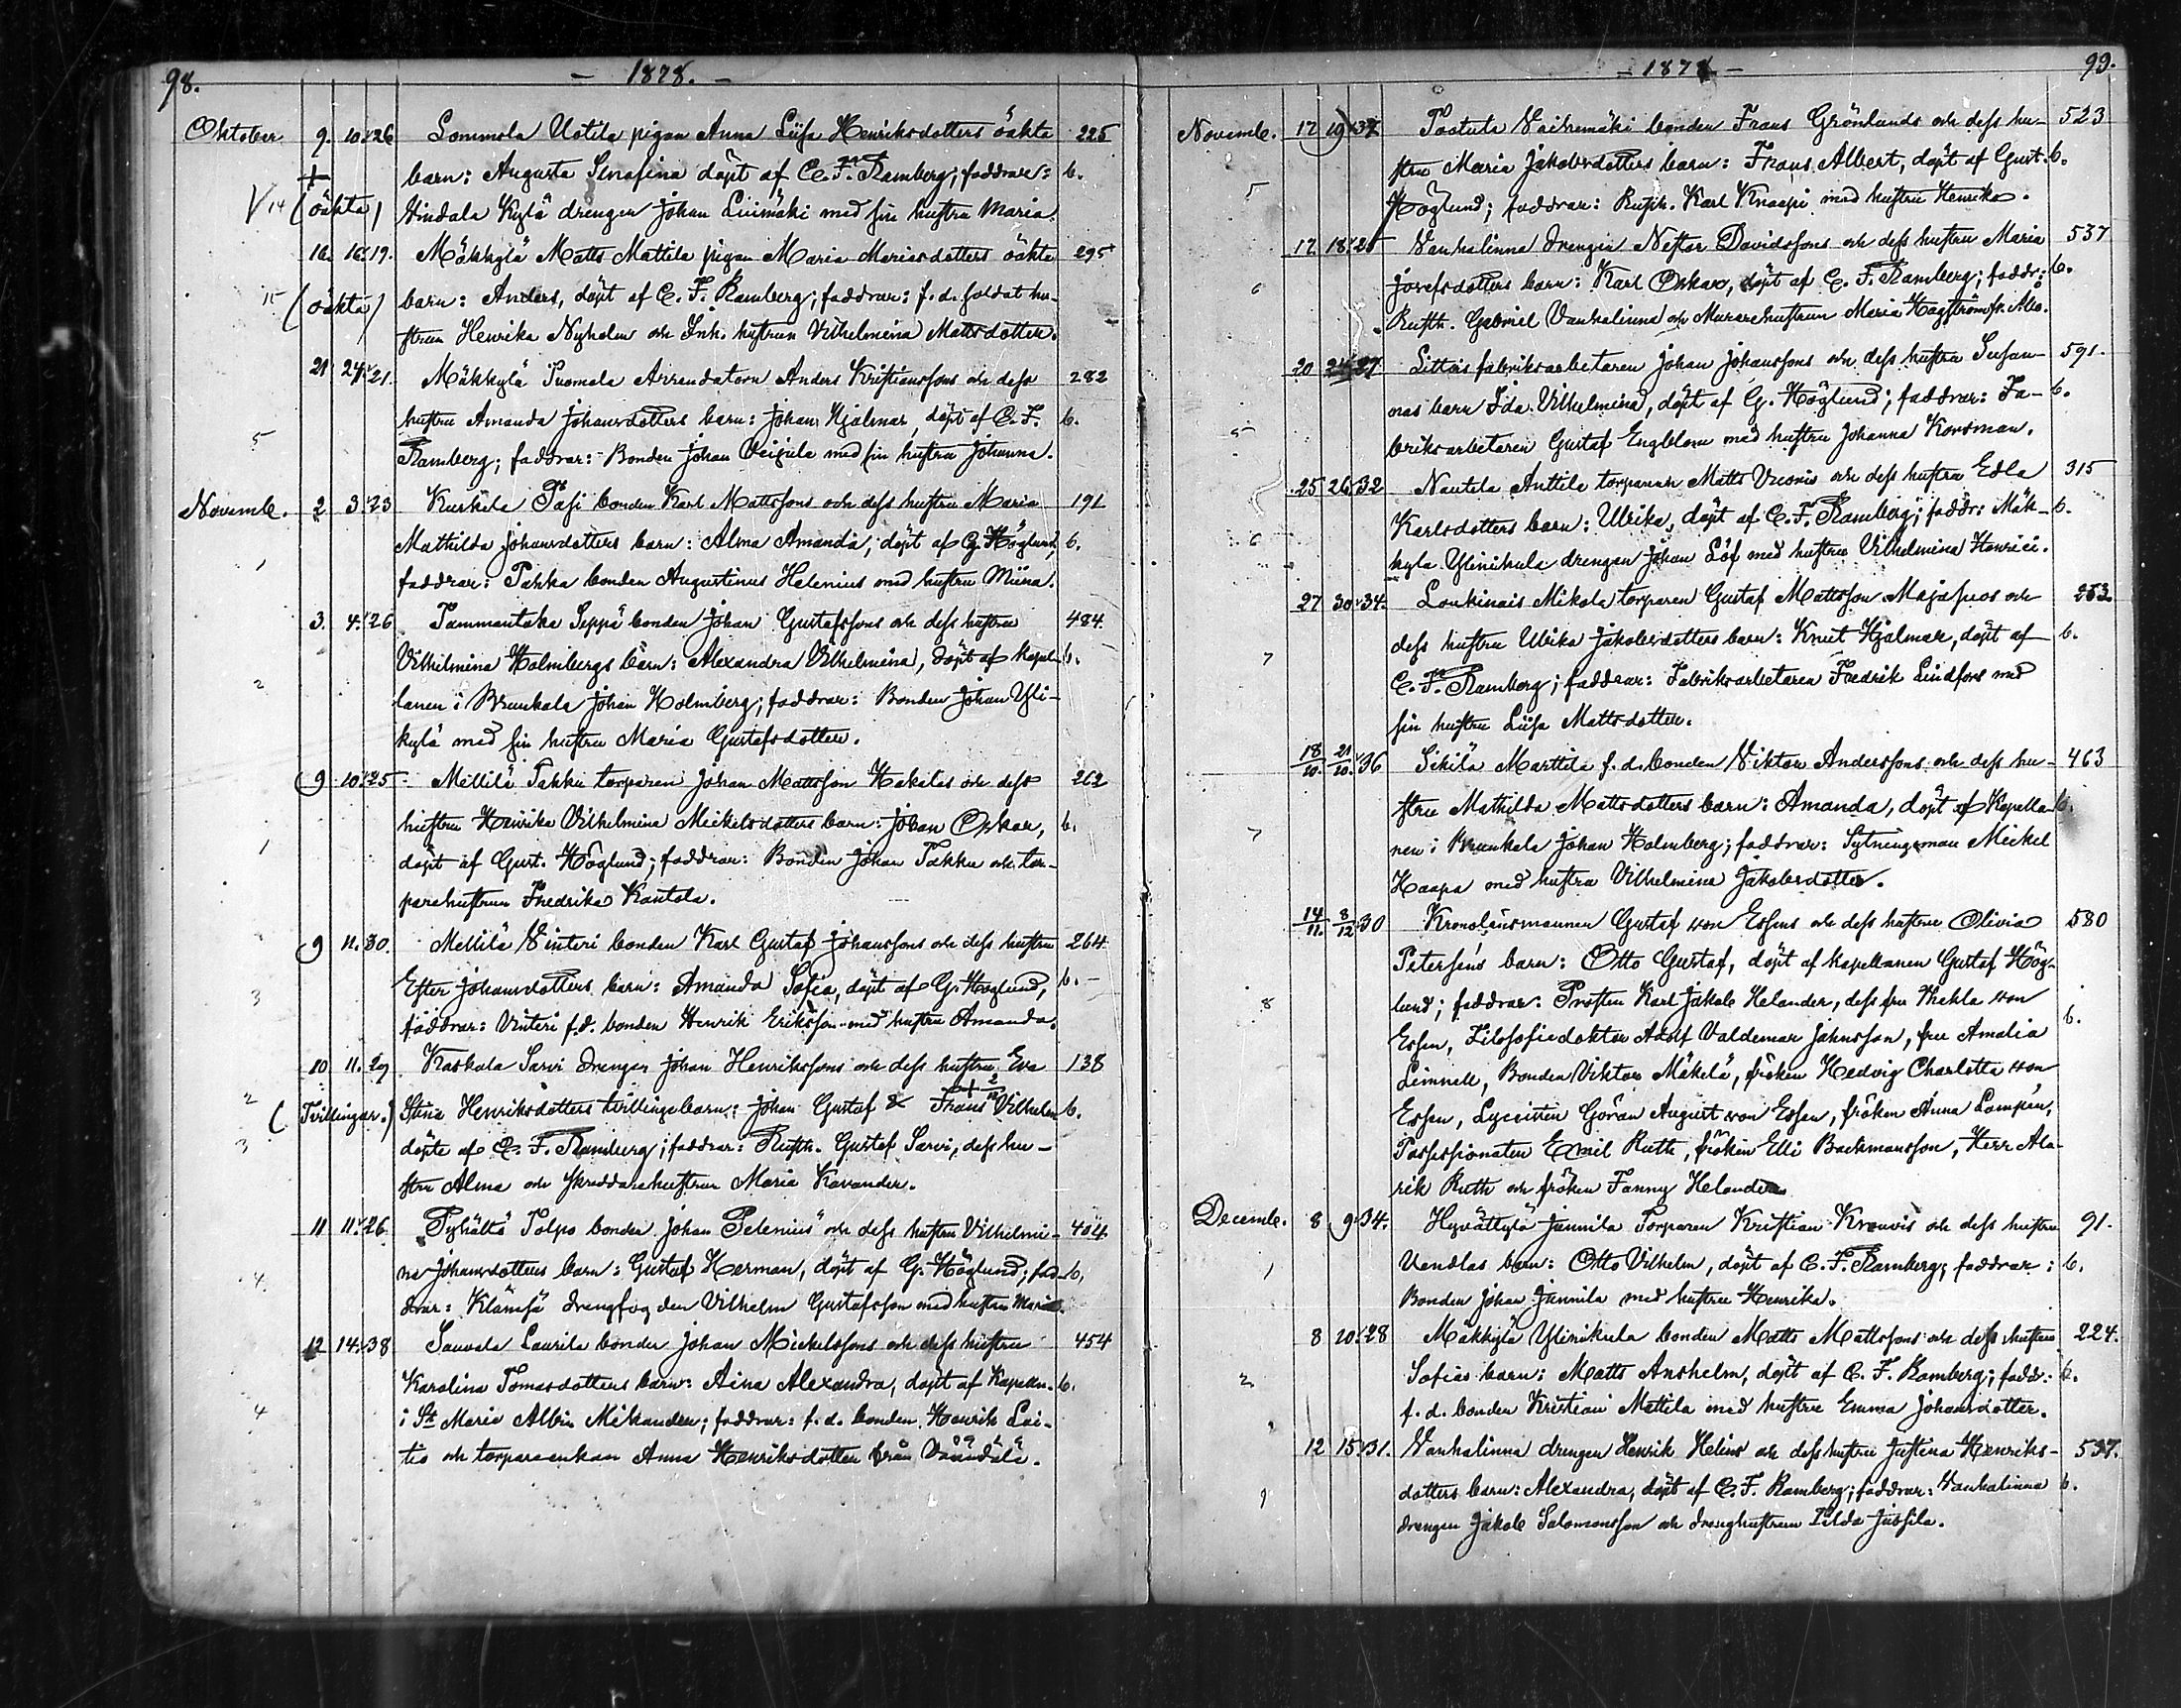 98.
- 1878. -
Oktober 9. 10. 26 Lommola Uotila pigan Anna Liisa Henriksdotters oäkta 225
+ barn: Augusta Serafina döpt af C. F. Ramberg; faddrar: b.
14 (oäkta) Kylä drengen Johan Liimäki med sin hustru Maria.
16. 16. 19. Mäkkylä Matts Mattila pigan Maria Mariasdotters oäkta 295
15 (oäkta) barn: Anders, döpt af C. F. Ramberg; faddrar: f. d. soldat hu-
strun Henrika Nyholm och Inh. hustrun Vilhelmina Mattsdotter.
21 24. 21. Mäkkylä Tuomola Arrendatorn Anders Kristianssons och dess 282
hustru Amanda Johansdotters barn: Johan Hjalmar, döpt af C. F. b.
5 Ramberg; faddrar: Bonden Johan med sin hustru Johanna.
Novemb. 2 3. 23 Kurkela Pasi bonden Karl Mattssons och dess hustru Maria 191
1 Mathilda Johansdotters barn: Alma Amanda, döpt af G. Höglund, b.
faddrar: Pakka bonden Augustinus Helenius med hustru Miina.
3. 4. 26 Tammentaka Seppä bonden Johan Gustafssons och dess hustru 484.
2 Vilhelmina Holmbergs barn: Alexandra Vilhelmina, döpt af Kapel- b.
lanen i Brunkala Johan Holmberg; faddrar: Bonden Johan Yli-
kylä med sin hustru Maria Gustafsdotter.
9 10. 25 Mellilä Takku torparen Johan Mattsson Hakalas och dess 262
hustru Henrika Vilhelmina Mickelsdotters barn: Johan Oskar, b.
1 döpt af Gust. Höglund; faddrar: Bonden Johan Takku och tor-
parehustrun Fredrika Kantola.
9 11. 30. Mellilä Vinteri bonden Karl Gustaf Johanssons och dess hustru 264.
3 Ester Johansdotters barn: Amanda Sofia, döpt af G. Höglund, b. -
faddrar: Vinteri f. d. bonden Henrik Eriksson med hustru Amanda.
10 11. 29 Kaskala Sarvi drengen Johan Henrikssons och dess hustru Eva 138
2 (Tvillingar.) Stina Henriksdotters tvillingebarn: Johan Gustaf & + Frans Vilhelm b.
3 döpte af C. F. Ramberg; faddrar: Rusth. Gustaf Sarvi, dess hu-
stru Alma och skreddarehustrun Maria Kavander.
11 11. 26. Pyhältö Tolpo bonden Johan Pelenius och dess hustru Vilhelmi- 404
4. na Johansdotters barn: Gustaf Herman, döpt af G. Höglund; fad- b.
drar: Klämsä drengfogden Vilhelm Gustafsson med hustru Maria.
12 14. 38 Sauvala Laurila bonden Johan Mickelssons och dess hustru 454
Karolina Tomasdotters barn: Aina Alexandra, döpt af Kapellan. b.
4 i St Marie Albin Mikander; faddrar: f. d. bonden Henrik Lai-
tio och torpareenkan Anna Henriksdotter från Väändälä.
- 1878 - 99.
Novemb. 17 19. 37 Paatula Vaihemäki bonden Frans Grönlunds och dess hu- 523
5 stru Maria Jakobsdotters barn: Frans Albert, döpt af Gust. b.
Höglund; faddrar: Rusth. Karl Knaapi med hustru Henrika.
17 18. 25 Vanhalinna drengen Nestor Davidssons och dess hustru Maria 537
6 Josefsdotters barn: Karl Oskar, döpt af C. F. Ramberg; faddr: b.
Rusth. Gabriel Vanhalinna och Murarehustrun Maria Hagström fr. Åbo.
20 24. 27 Littois fabriksarbetaren Johan Johanssons och dess hustru Susan- 591.
5 nas barn Ida Vilhelmina, döpt af G. Höglund; faddrar: Fa- b.
briksarbetaren Gustaf Engblom med hustru Johanna Korsman.
25 26. 32 Nautela Anttila torparen Matts och dess hustru Edla 315
6 Karlsdotters barn: Ulrika, döpt af C. F. Ramberg; faddr: Mäk- b.
kylä Ylinikula drengen Johan Löf med hustru Vilhelmina Henrici.
27 30. 34. Loukinais Mikola torparen Gustaf Mattsson och 253
7 dess hustru Ulrika Jakobsdotters barn: Knut Hjalmar, döpt af b.
C. F. Ramberg; faddrar: Fabriksarbetaren Fredrik Lindfors med
sin hustru Liisa Mattsdotter.
18/10. 21/10. 36 Sikilä Marttila f. d. bonden Viktor Anderssons och dess hu- 463
stru Mathilda Mattsdotters barn: Amanda, döpt af Kapella- b.
7 nen i Brunkala Johan Holmberg; faddrar: Sytningsman Mickel
Haapa med hustru Vilhelmina Jakobsdotter.
14/11. 8/12 30 Kronolänsmannen Gustaf von Essens och dess hustru Olivia 580
Peterséns barn: Otto Gustaf, döpt af kapellanen Gustaf Hög-
8 lund; faddrar: Prosten Karl Jakob Helander, dess fru Thekla von
Essen, Filosofiedoktor Adolf Valdemar Jahnsson, fru Amalia b.
Limnell, Bonden Viktor Mäkelä, fröken Hedvig Charlotta von
Essen, Lyceisten Göran August von Essen, fröken Anna Lampén,
Possessionaten Emil Ruth, fröken Elli Backmansson, Herr Ala-
rik Ruth och fröken Fanny Helander.
Decemb. 8 9. 34. Hyvättylä Junnila Torparen Kristian och dess hustru 91.
1 Vendlas barn: Otto Vilhelm, döpt af C. F. Ramberg; faddrar: b.
Bonden Johan Junnila med hustru Henrika.
8 10. 28 Mäkkylä Ylinikula bonden Matts Mattssons och dess hustru 224.
2 Sofias barn: Matts Anshelm, döpt af C. F. Ramberg; faddr: b.
f. d. bonden Kristian Mattila med hustru Emma Johansdotter.
12 15. 31. Vanhalinna drengen Henrik Helins och dess hustru Justina Henriks- 537.
9 dotters barn: Alexandra, döpt af C. F. Ramberg; faddrar: Vanhalinna b.
drengen Jakob Salomonsson och drenghustrun Tilda Jussila.